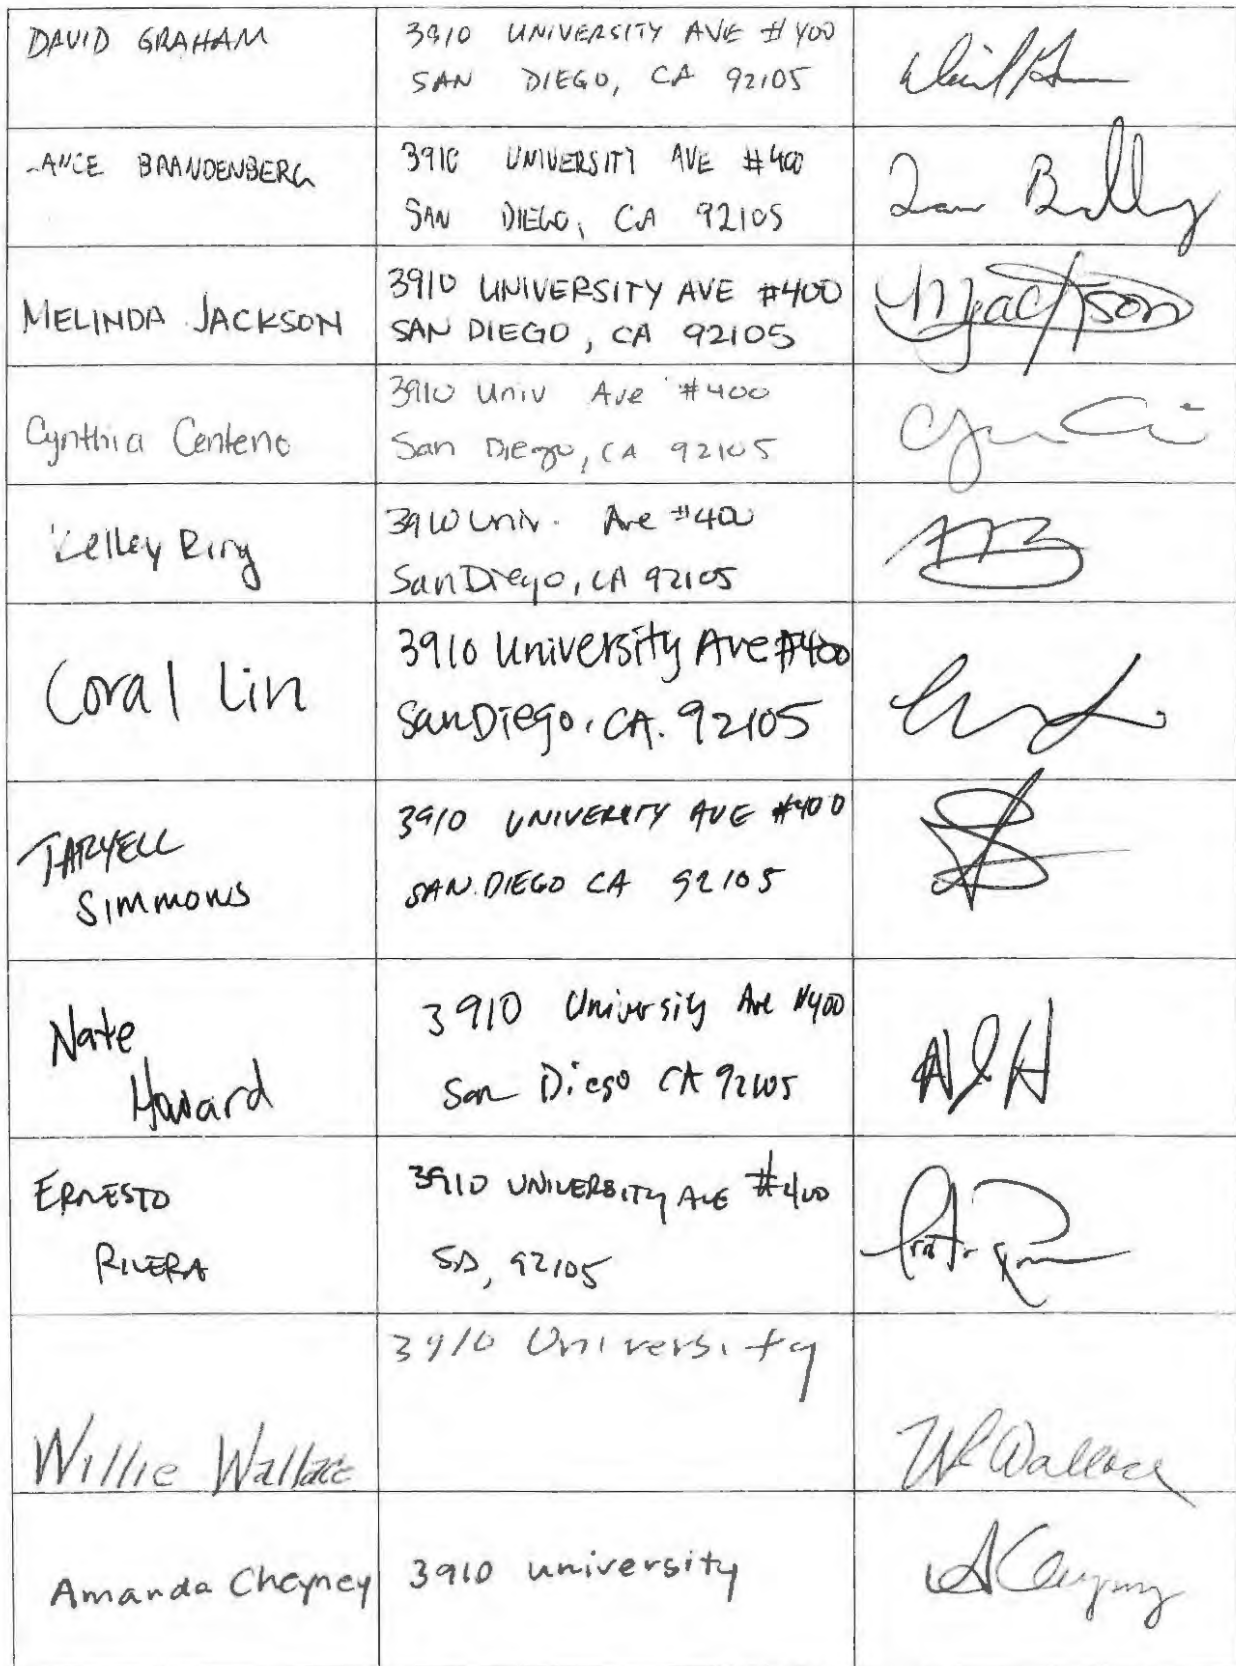 DAVID GRAHAM
3910 UNIVERSITY AVE #400
SAN DIEGO, CA 92105
LANCE BRANDENBERG
3910 UNIVERSITY AVE #400
SAN DIEGO, CA 92105
MELINDA JACKSON
3910 UNIVERSITY AVE #400
SAN DIEGO, CA 92105
MJackson
Cynthia Centeno
3910 Univ Ave #400
San Diego, CA 92105
Kelley Ring
3910 Univ. Ave #400
San Diego, CA 92105
Coral Lin
3910 University Ave #400
San Diego, CA. 92105
TARYELL
SIMMONS
3910 UNIVERSITY AVE #400
SAN DIEGO CA 92105
Nate
Howard
3910 University Ave #400
San Diego CA 92105
ERNESTO
RIVERA
3910 UNIVERSITY AVE #400
SD, 92105
3910 University
Willie Wallace
W Wallace
Amanda Cheyney
3910 university
ACheyney